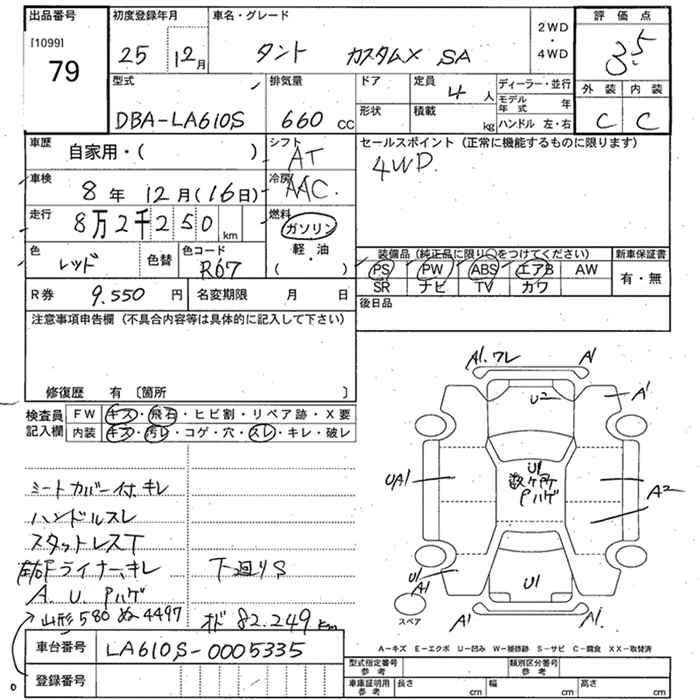 出品番号 初度登録年月 車名・グレード 2WD・4WD 評価点
[1099] 79 25 12月 タント カスタムX SA 3.5
外装 内装
C C
型式 排気量 ドア 定員 ディーラー・並行
4人 モデル年式 年
DBA-LA610S 660cc 形状 積載 kg ハンドル 左・右
車歴 自家用・( ) シフト AT セールスポイント (正常に機能するものに限ります)
4WD
車検 8年12月(16日) 冷房 AAC.
走行 8万2千250km 燃料 ガソリン・軽油 ( )
色 レッド 色替 色コード R67
装備品 (純正品に限り○をつけてください) 新車保証書
PS PW ABS エアB AW 有・無
SR ナビ TV カワ
R券 9.550円 名変期限 月 日 後日品
注意事項申告欄 (不具合内容等は具体的に記入して下さい)
修復歴 有 〔箇所 〕
検査員記入欄 FW キズ・飛石・ヒビ割・リペア跡・X要
内装 キズ・汚レ・コゲ・穴・スレ・キレ・破レ
A1.ワレ A1
U2 A1
UA1 U1 数ヶ所 Pハゲ A2
U1 A1 U1
A1 A1.
スペア
シートカバー付.キレ
ハンドルスレ
スタットレスT
左右Fライナー.キレ 下廻りS
A.U.Pハゲ
山形580ぬ-4497 オド82.249km
A-キズ E-エクボ U-凹み W-補修跡 S-サビ C-腐食 XX-取替済
車台番号 LA610S-0005335
登録番号
型式指定番号 参考 類別区分番号 参考
車庫証明用 参考 長さ cm 幅 cm 高さ cm